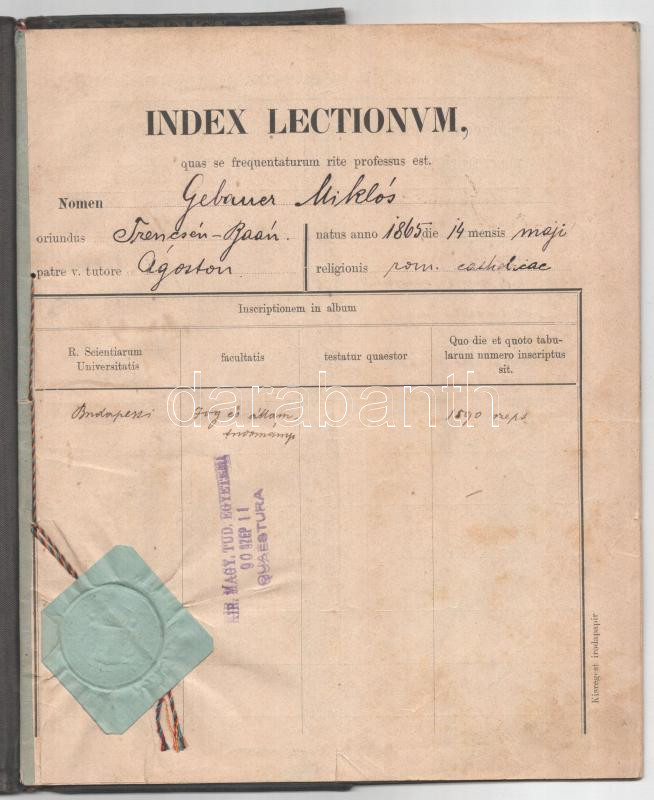 INDEX LECTIONVM,
quas se frequentaturum rite professus est.
Nomen Gebauer Miklós
oriundus Trencsén-Baán. natus anno 1865 die 14 mensis maji
patre v. tutore Ágoston. religionis rom. catholicae
Inscriptionem in album
R. Scientiarum
Universitatis
facultatis
testatur quaestor
Quo die et quoto tabu-
larum numero inscriptus
sit.
Budapesti
Jog és állam
tudományi
1890 szept
darabanth
KIR. MAGY. TUD. EGYETEMI
90 SZEP 11
QUAESTURA
Kisrégest irodapapir